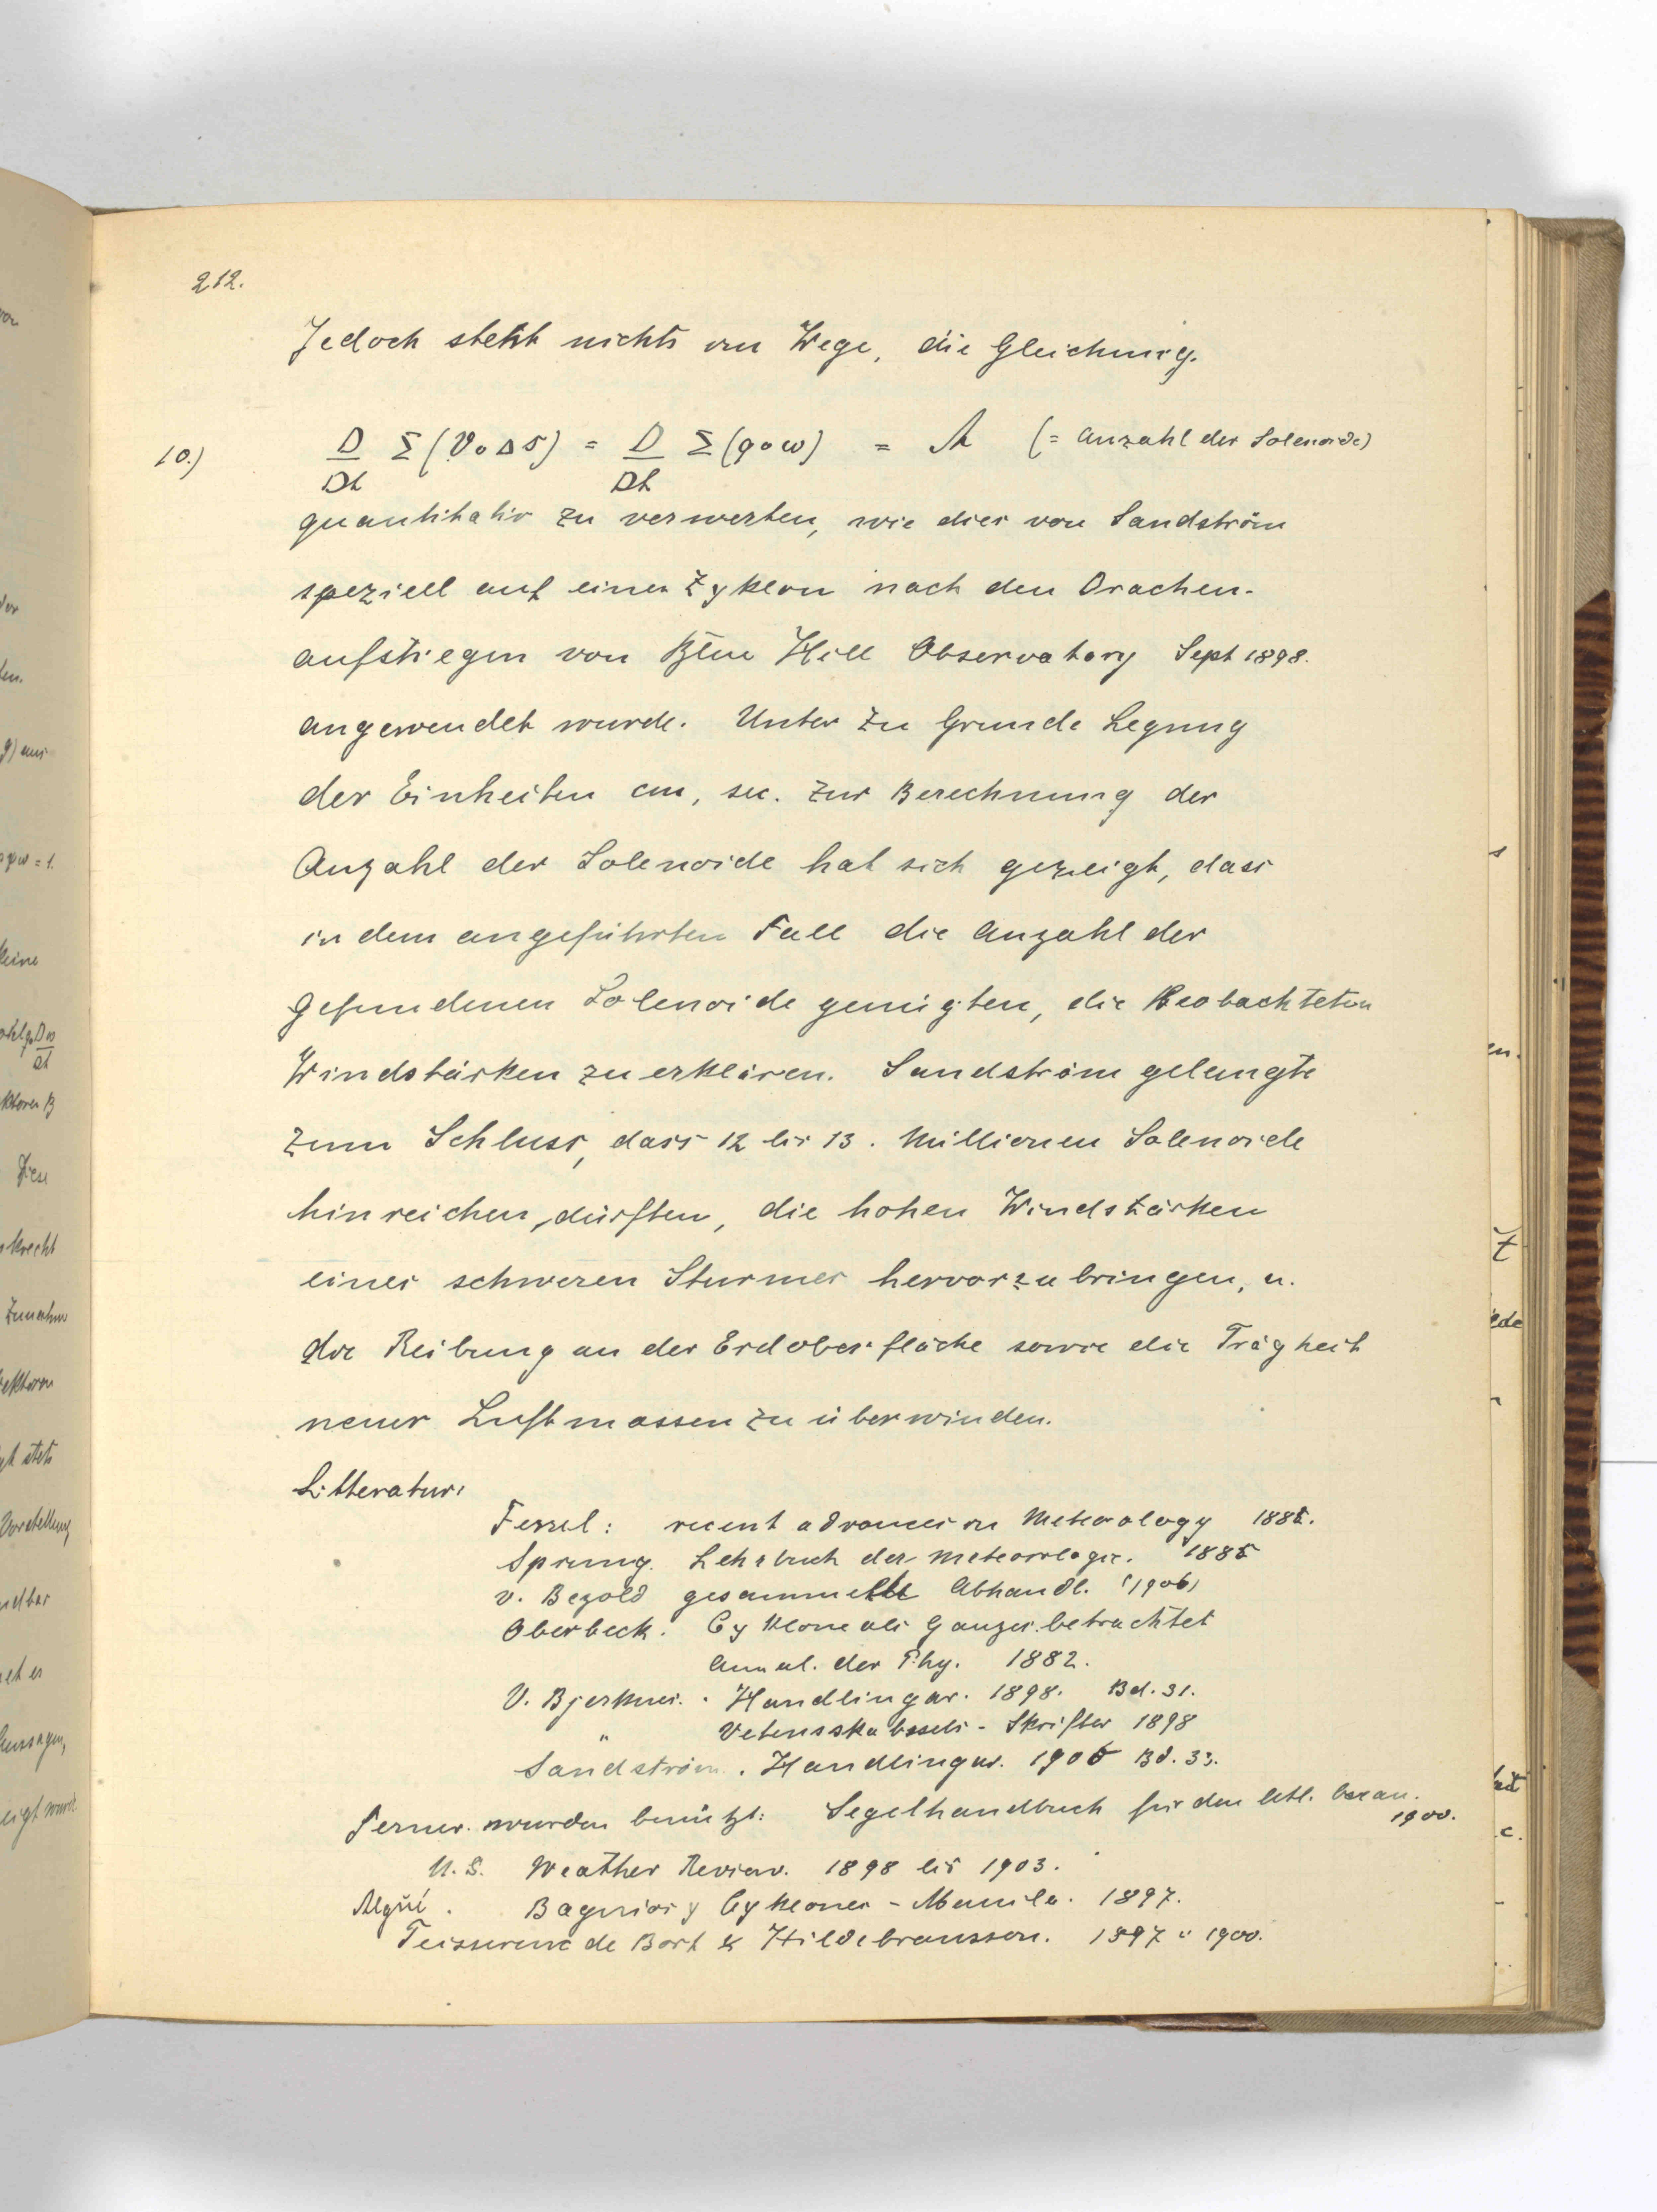 212.
Jedoch steht nichts im Wege, die Gleichung.
10.) D/Dt Σ(v∘Δs) = D/Dt Σ(q∘w) = A (= Anzahl der Solenoide)
quantitativ zu verwerten, wie dies von Sandström
speziell auf einen Zyklon nach den Drachen-
aufstiegen von Blue Hill Observatory Sept 1898.
angewendet wurde. Unter zu Grunde Legung
der Einheiten cm, sec. zur Berechnung der
Anzahl der Solenoide hat sich gezeigt, dass
in dem angeführten Fall die Anzahl der
gefundenen Solenoide genügten, die Beobachteten
Windstärken zu erklären. Sandström gelangte
zum Schluss, dass 12 bis 13. Millionen Solenoide
hinreichen dürften, die hohen Windstärken
eines schweren Sturmes hervorzubringen, u.
die Reibung an der Erdoberfläche sowie die Trägheit
neuer Luftmassen zu überwinden.
Litteratur:
Ferrel: recent advances in Meteorology 1885.
Sprung. Lehrbuch der Meteorologie. 1885
v. Bezold gesammelte Abhandl. (1906)
Oberbeck. Cyklone als Ganzes betrachtet
Annal. der Phy. 1882.
V. Bjerknes. Handlingar. 1898. Bd. 31.
" Vetensskabssels - Skrifter 1898
Sandström. Handlingar. 1900 Bd. 33.
Ferner wurden benützt: Segelhandbuch für den atl. Ozean.
1900.
U.S. Weather Review. 1898 bis 1903.
Algué. Baguios y Cyklones - Manila. 1897.
Teisserenc de Bort & Hildebransson. 1897 " 1900.